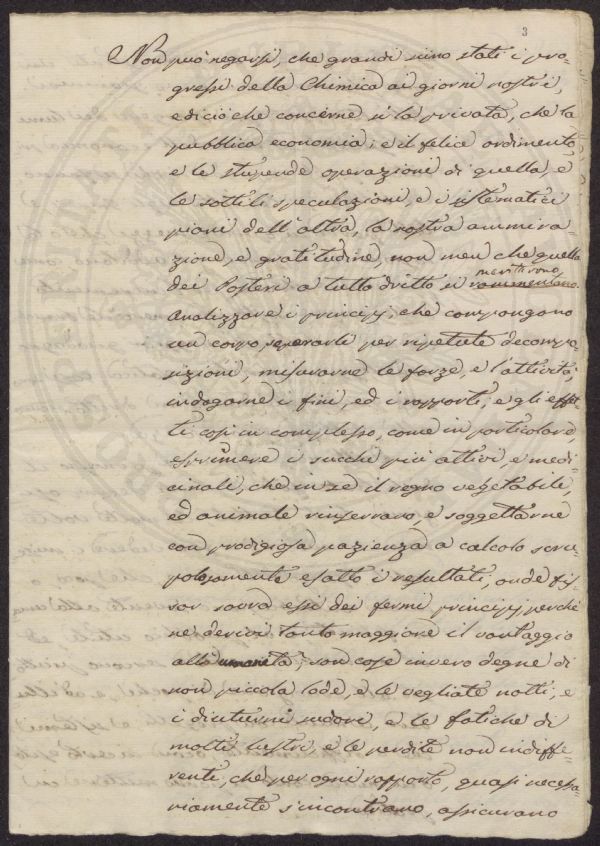 3
Non può negarsi, che grandi sieno stati i pro=
gressi della Chimica ai giorni nostri,
e diciò che concerne sì la privata, che la
pubblica economia; e il felice ardimento,
e le stupende operazioni di quella, e
le sottili speculazioni, e i sistematici
piani dell'altra, la nostra ammira=
zione, e gratitudine, non men che quella
dei Posteri a tutto dritto si meriterono
Analizzare i principj, che compongono
un corpo, separarli per ripetute decompo=
sizioni, misurarne le forze, e l'attività,
indagarne i fini, ed i rapporti, e gli effet=
ti così in complesso, come in particolare,
esprimere i succhi più attivi, e medi=
cinali, che in se il regno vegetabile,
ed animale rinserrano, e soggettarne
con prodigiosa pazienza a calcolo scru=
polosamente esatto i resultati, onde fis=
sar sovra essi dei fermi principj, perchè
ne derivi tanto maggiore il vantaggio
alla umanità, son cose invero degne di
non piccola lode, e le vegliate notti, e
i diuturni sudori, e le fatiche di
molti lustri, e le perdite non indiffe=
renti, che per ogni rapporto, quasi necessa=
riamente s'incontrano, assicurano